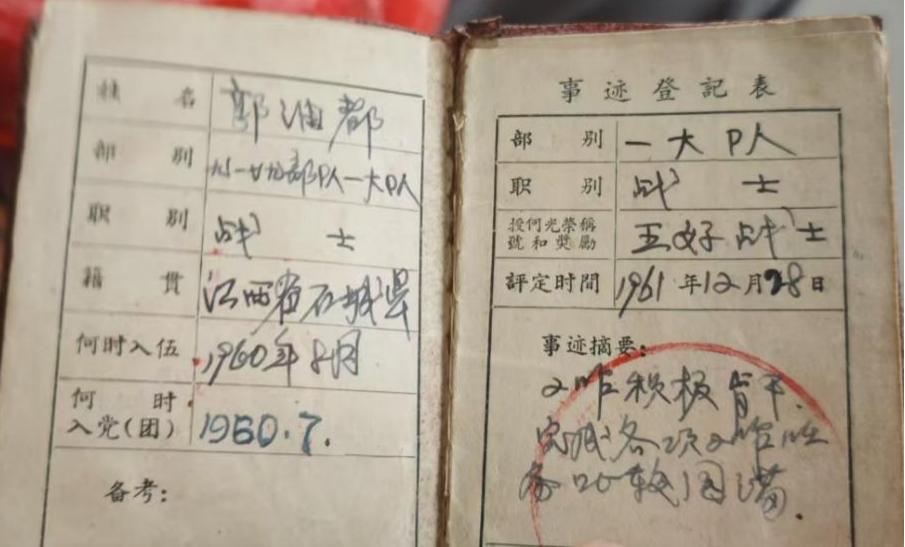 姓 名 郭 都
部 别 部队一大队
职 别 战 士
籍 贯 江西省石城县
何时入伍 1960年8月
何 时
入党(团) 1960.7.
备考:
事迹登記表
部 别 一大队
职 别 战 士
授何光荣稱
號和獎勵 五好战士
評定时間 1961年12月28日
事迹摘要:
工作积极肯干.
完成各项工作任
务比较圆满.